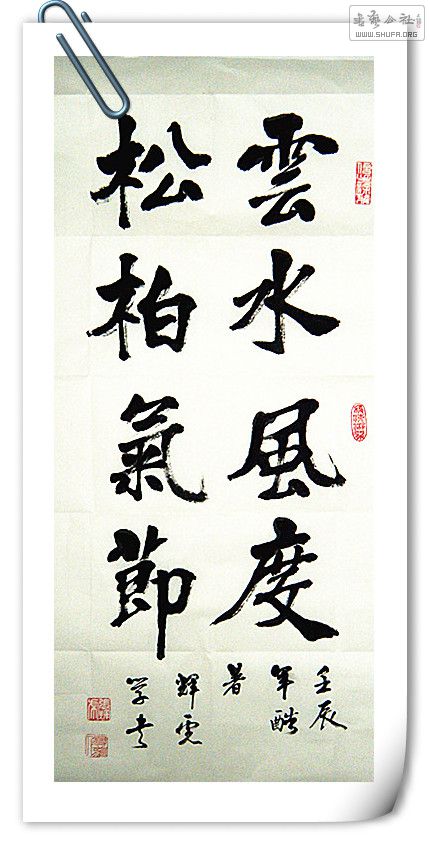 書藝公社
WWW.SHUFA.ORG
雲水風度
松柏氣節
壬辰
年酷
暑
学书